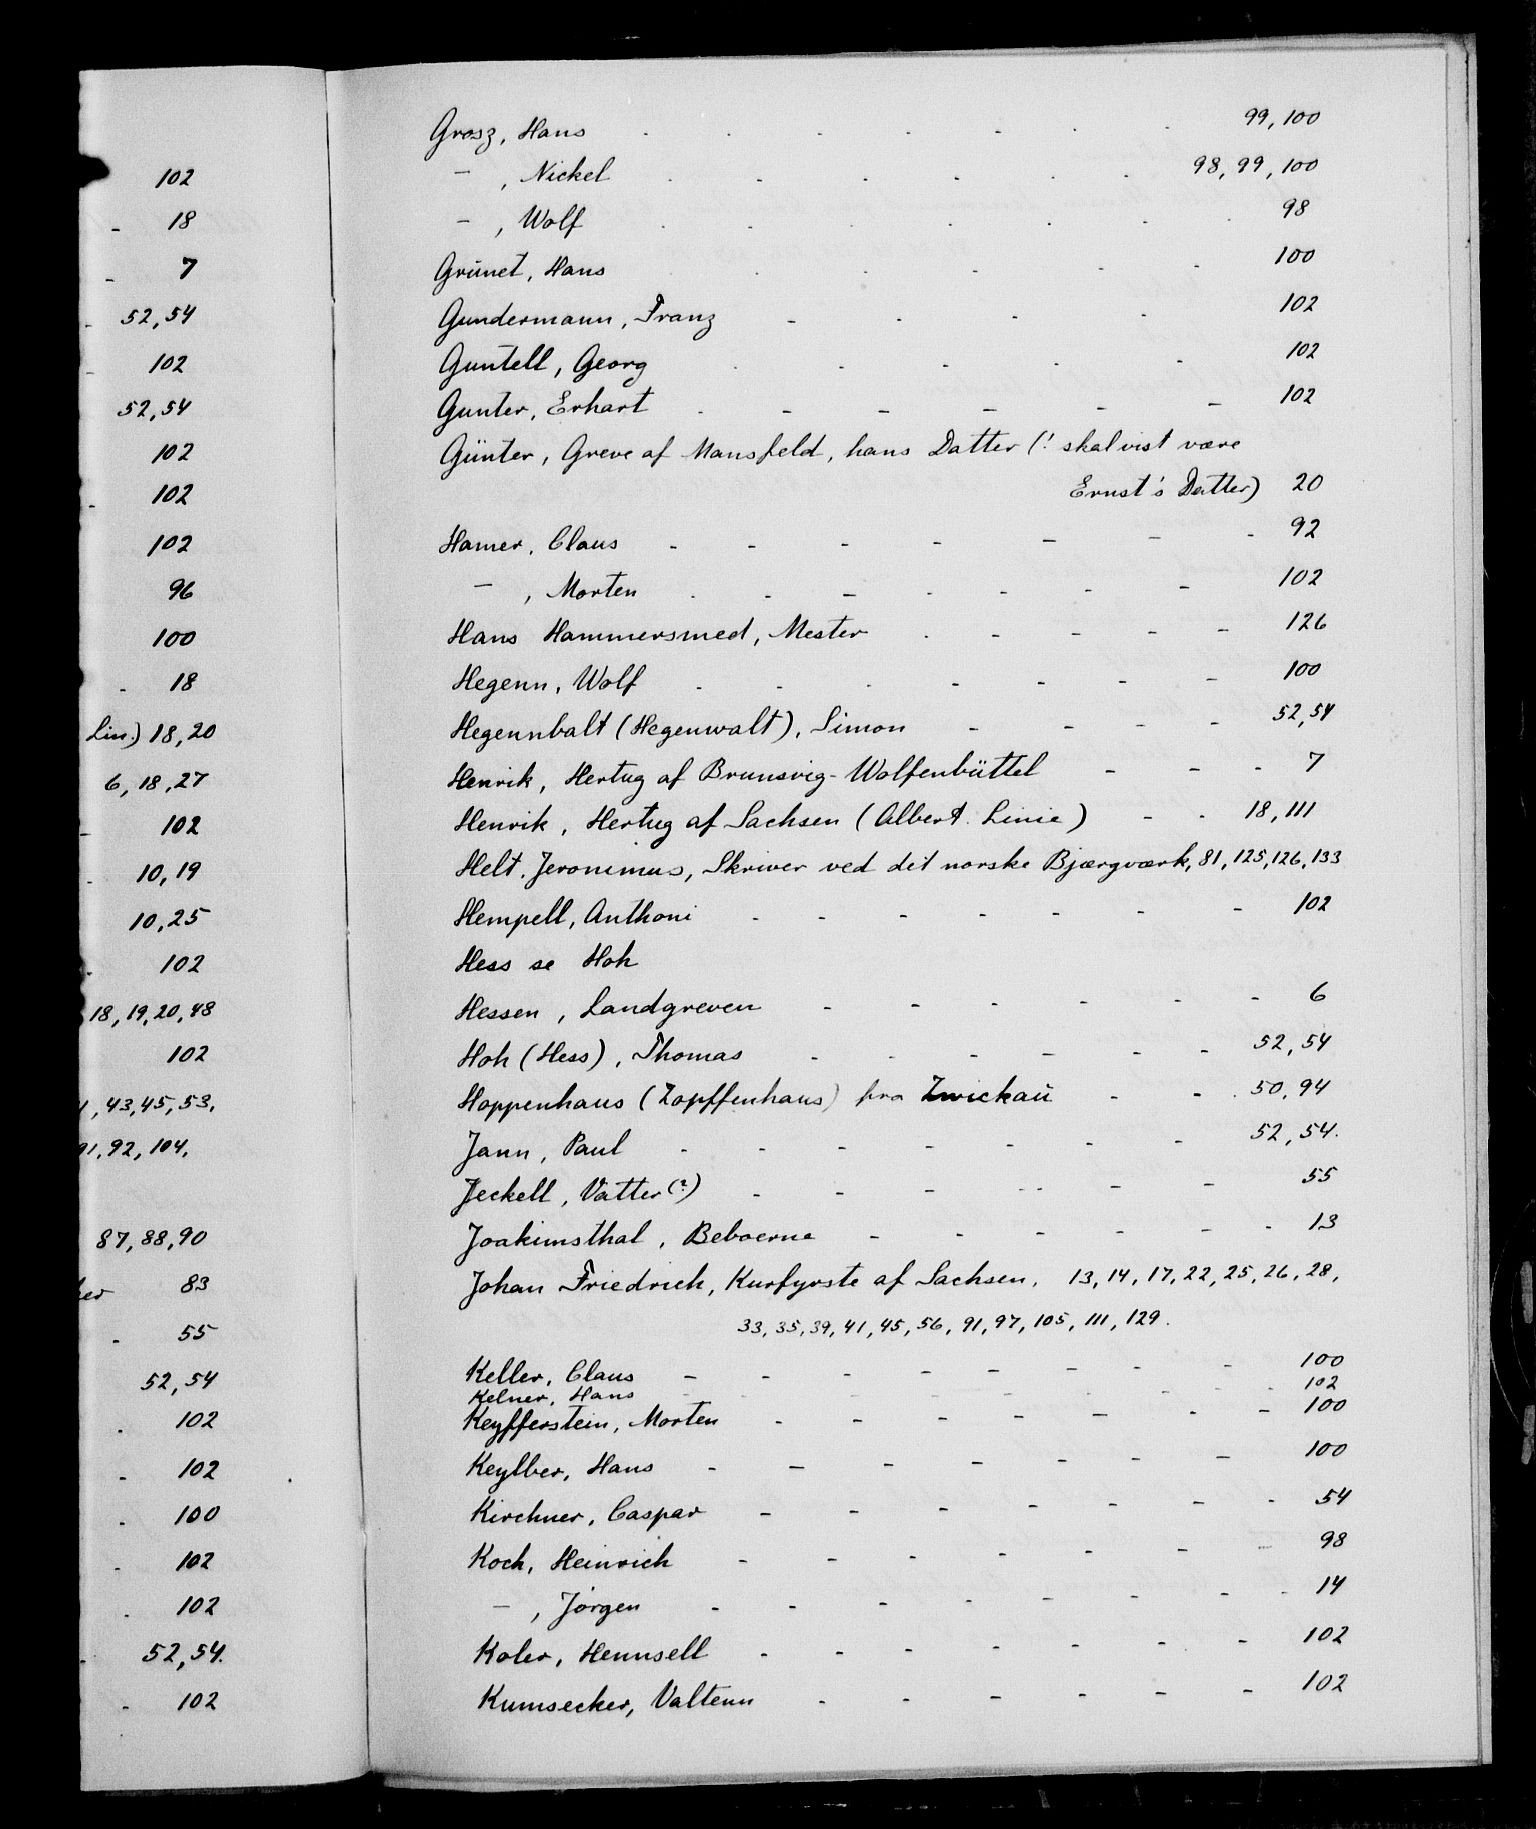 102
- 18
- 7
- 52,54
- 102
52,54
102
- 102
102
96
100
- 18
Lin.) 18,20
6,18,27
- 102
- 10,19
10,25
- 102
18,19,20,48
102
,43,45,53,
91,92,104,
87,88,90
83
- 55
52,54
. 102
- 102
. 100
- 102
. 102
. 52,54.
- 102
Grosz, Hans 99,100
- , Nickel 98,99,100
- , Wolf 98
Grünet, Hans 100
Gundermann, Franz 102
Guntell, Georg 102
Gunter, Erhart 102
Günter, Greve af Mansfeld, hans Datter (! skal vist være
Ernst's Datter) 20
Hamer, Claus 92
- , Morten 102
Hans Hammersmed, Mester 126
Hegenn, Wolf 100
Hegennbalt (Hegenwalt), Simon 52,54
Henrik, Hertug af Brunsvig-Wolfenbüttel 7
Henrik, Hertug af Sachsen (Albert. Linie) 18,111
Helt. Jeronimus, Skriver ved det norske Bjærgværk, 81,125,126,133
Hempell, Anthoni 102
Hess se Hoh
Hessen, Landgreven 6
Hoh (Hess), Thomas 52,54
Hoppenhaus (Zopffenhaus) fra Zwickau 50,94
Jann, Paul 52,54.
Jeckell, Vatter(?) 55
Joakimsthal, Beboerne 13
Johan Friedrich, Kurfyrste af Sachsen, 13,14,17,22,25,26,28,
33,35,39,41,45,56,91,97,105,111,129.
Keller, Claus 100
Kelner, Hans 102
Keyfferstein, Morten 100
Keylber, Hans 100
Kirchner, Caspar 54
Koch, Heinrich 98
- , Jørgen 14
Koler, Hennsell 102
Kumsecker, Valtenn 102